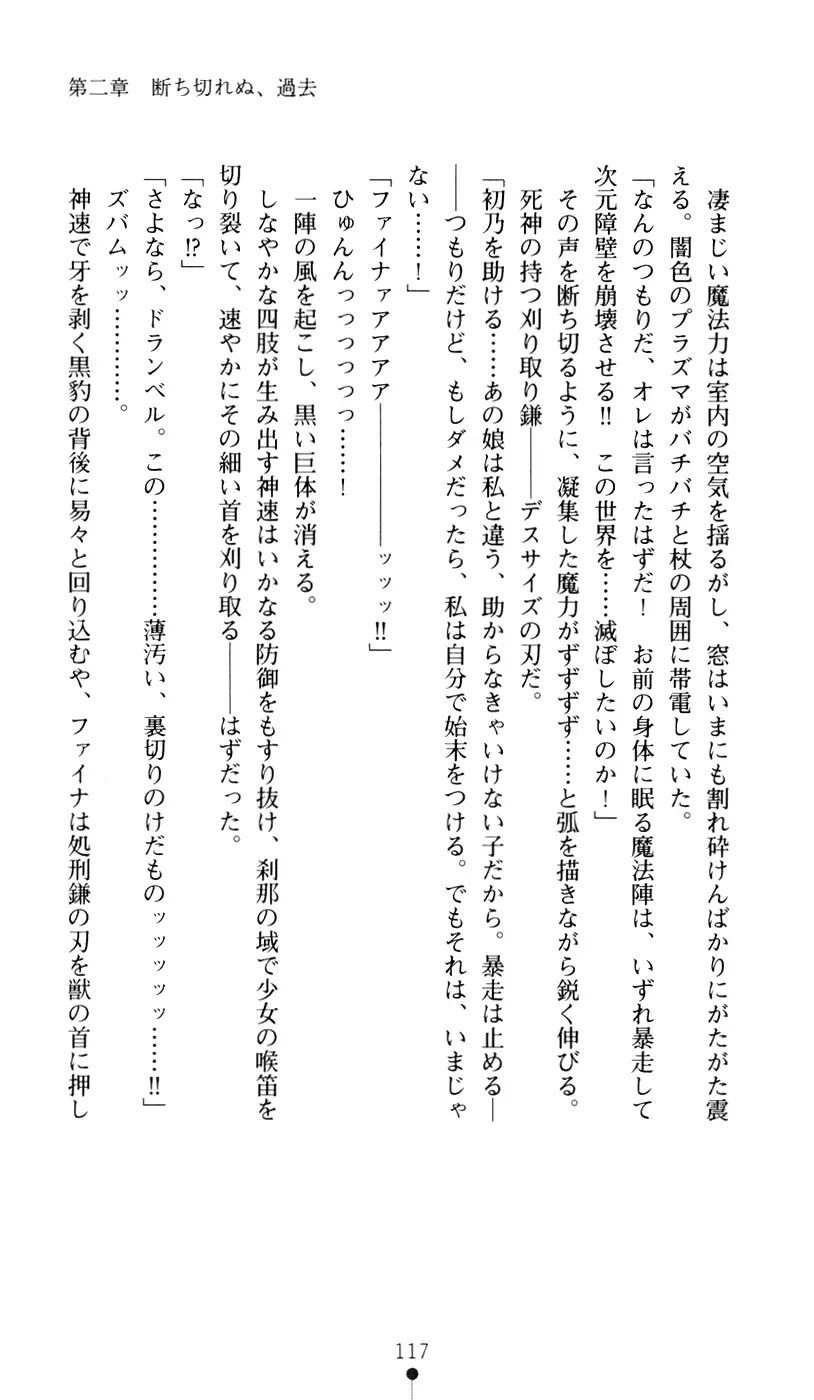 第二章　断ち切れぬ、過去
　凄まじい魔法力は室内の空気を揺るがし、窓はいまにも割れ砕けんばかりにがたがた震
える。闇色のプラズマがバチバチと杖の周囲に帯電していた。
「なんのつもりだ、オレは言ったはずだ！　お前の身体に眠る魔法陣は、いずれ暴走して
次元障壁を崩壊させる‼　この世界を……滅ぼしたいのか！」
　その声を断ち切るように、凝集した魔力がずずず……と弧を描きながら鋭く伸びる。
　死神の持つ刈り取り鎌――デスサイズの刃だ。
「初乃を助ける……あの娘は私と違う、助からなきゃいけない子だから。暴走は止める―
――つもりだけど、もしダメだったら、私は自分で始末をつける。でもそれは、いまじゃ
ない……！」
「ファイナァアアアア――――――ッッッ‼」
　ひゅんんっっっっっ……！
　一陣の風を起こし、黒い巨体が消える。
　しなやかな四肢が生み出す神速はいかなる防御をもすり抜け、刹那の域で少女の喉笛を
切り裂いて、速やかにその細い首を刈り取る――はずだった。
「なっ⁉」
「さよなら、ドランベル。この……………薄汚い、裏切りのけだものッッッッッ……‼」
　ズバムッッ…………。
　神速で牙を剥く黒豹の背後に易々と回り込むや、ファイナは処刑鎌の刃を獣の首に押し
117